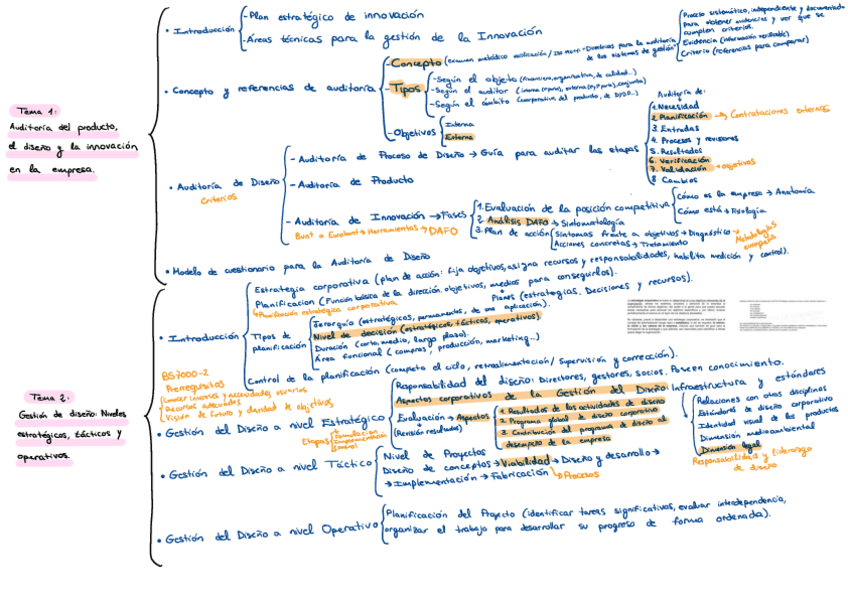 Tema 1:
Auditoría del producto,
el diseño y la innovación
en la empresa.
• Introducción
-Plan estratégico de innovación
-Áreas técnicas para la gestión de la Innovación
• Concepto y referencias de auditoría
-Concepto (examen metódico
-Directrices para la auditoría
de los sistemas de gestión
Proceso sistemático, independiente y documentado
para obtener evidencias y ver que se
cumplen criterios.
Evidencia (información verificable)
Criterio (referencias para comparar)
-Tipos
-Según el objeto (financiera, organizativa, de calidad...)
-Según el auditor
-Según el ámbito (corporativa, del producto, de
-Objetivos
Interna
Externa
• Auditoría de Diseño
Criterios
-Auditoría de Proceso de Diseño → Guía para auditar las etapas
Auditoría de:
1. Necesidad
2. Planificación → Contrataciones externas
3. Entradas
4. Procesos y revisiones
5. Resultados
6. Verificación
7. Validación → objetivos
8. Cambios
-Auditoría de Producto
-Auditoría de Innovación → Fases
→ Herramientas → DAFO
1. Evaluación de la posición competitiva
Cómo es la empresa → Anatomía
Cómo está → Fisiología
2. Análisis DAFO → Sintomatología
3. Plan de acción
Síntomas frente a objetivos → Diagnóstico
Acciones concretas → Tratamiento
Metodologías
• Modelo de cuestionario para la Auditoría de Diseño
Tema 2:
Gestión de diseño: Niveles
estratégicos, tácticos y
operativos.
• Introducción
Estrategia corporativa (plan de acción: fija objetivos, asigna recursos y responsabilidades, habilita medición y control).
Planificación (Función básica de la dirección, objetivos, medios para conseguirlos).
Planes (estrategias, Decisiones y recursos).
→ Planificación estratégica corporativa
Tipos de
planificación
Jerarquía (estratégicos, permanentes, de una aplicación).
Nivel de decisión (estratégicos, tácticos, operativos)
Duración (corto, medio, largo plazo).
Área funcional (compras, producción, marketing...)
Control de la planificación (completa el ciclo, retroalimentación/ supervisión y corrección).
BS7000-2
Prerrequisitos
Conocer intereses y necesidades usuarios
Recursos adecuados
Visión de futuro y claridad de objetivos
• Gestión del Diseño a nivel Estratégico
Etapas
Formulación
Implementación
Control
Responsabilidad del diseño: Directores, gestores, socios. Poseen conocimiento.
Aspectos corporativos de la Gestión del Diseño
Infraestructura y estándares
Relaciones con otras disciplinas
Estándares de diseño corporativo
Identidad visual de los productos
Dimensión medioambiental
Dimensión legal
Responsabilidad y liderazgo
de diseño
Evaluación → Aspectos
(Revisión resultados)
1. Resultados de las actividades de diseño
2. Programa global de diseño corporativo
3. Contribución del programa de diseño al
desempeño de la empresa
• Gestión del Diseño a nivel Táctico
Nivel de Proyectos
Diseño de conceptos → Viabilidad → Diseño y desarrollo →
→ Implementación → Fabricación
↳ Procesos
• Gestión del Diseño a nivel Operativo
Planificación del Proyecto (identificar tareas significativas, evaluar interdependencia,
organizar el trabajo para desarrollar su progreso de forma ordenada).